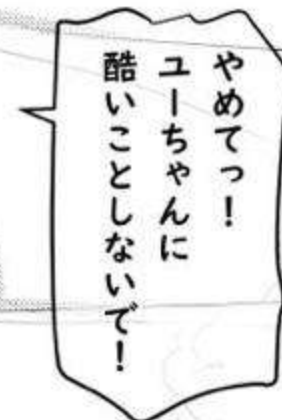 やめてっ！
ユーちゃんに
酷いことしないで！